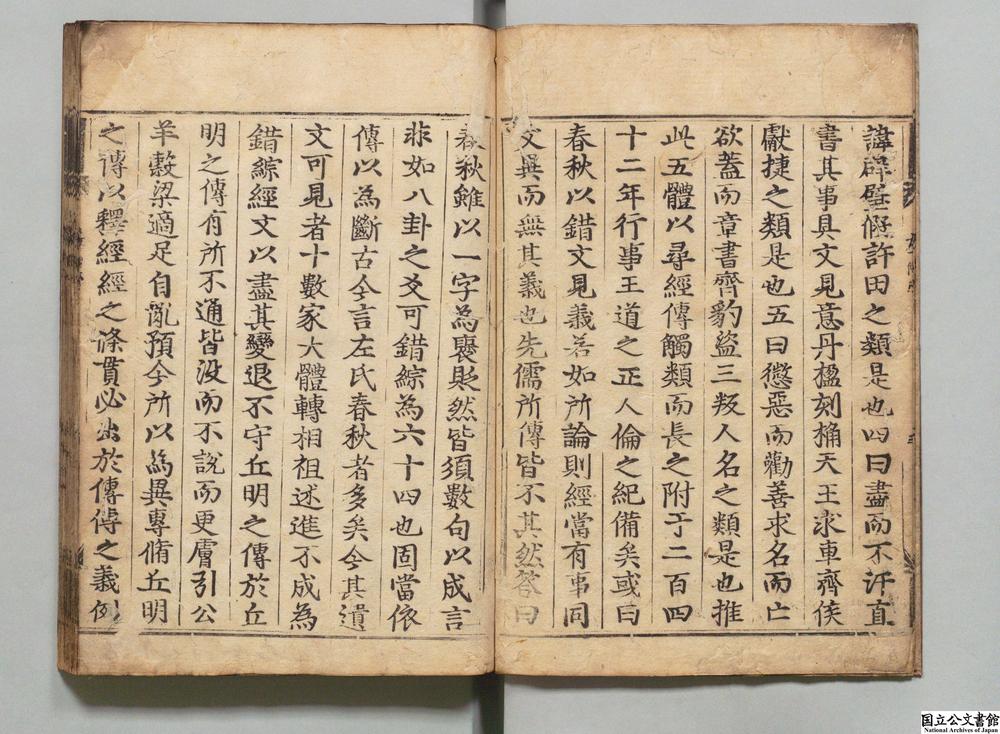 諱辟璧假許田之類是也四曰盡而不汙直
書其事具文見意丹楹刻桷天王求車齊侯
獻捷之類是也五曰懲惡而勸善求名而亡
欲蓋而章書齊豹盜三叛人名之類是也推
此五體以尋經傳觸類而長之附于二百四
十二年行事王道之正人倫之紀備矣或曰
春秋以錯文見義若如所論則經當有事同
文異而無其義也先儒所傳皆不其然答曰
春秋雖以一字為褒貶然皆須數句以成言
非如八卦之爻可錯綜為六十四也固當依
傳以為斷古今言左氏春秋者多矣今其遺
文可見者十數家大體轉相祖述進不成為
錯綜經文以盡其變退不守丘明之傳於丘
明之傳有所不通皆沒而不說而更膚引公
羊穀梁適足自亂預今所以為異專脩丘明
之傳以釋經經之條貫必出於傳傳之義例
国立公文書館
National Archives of Japan